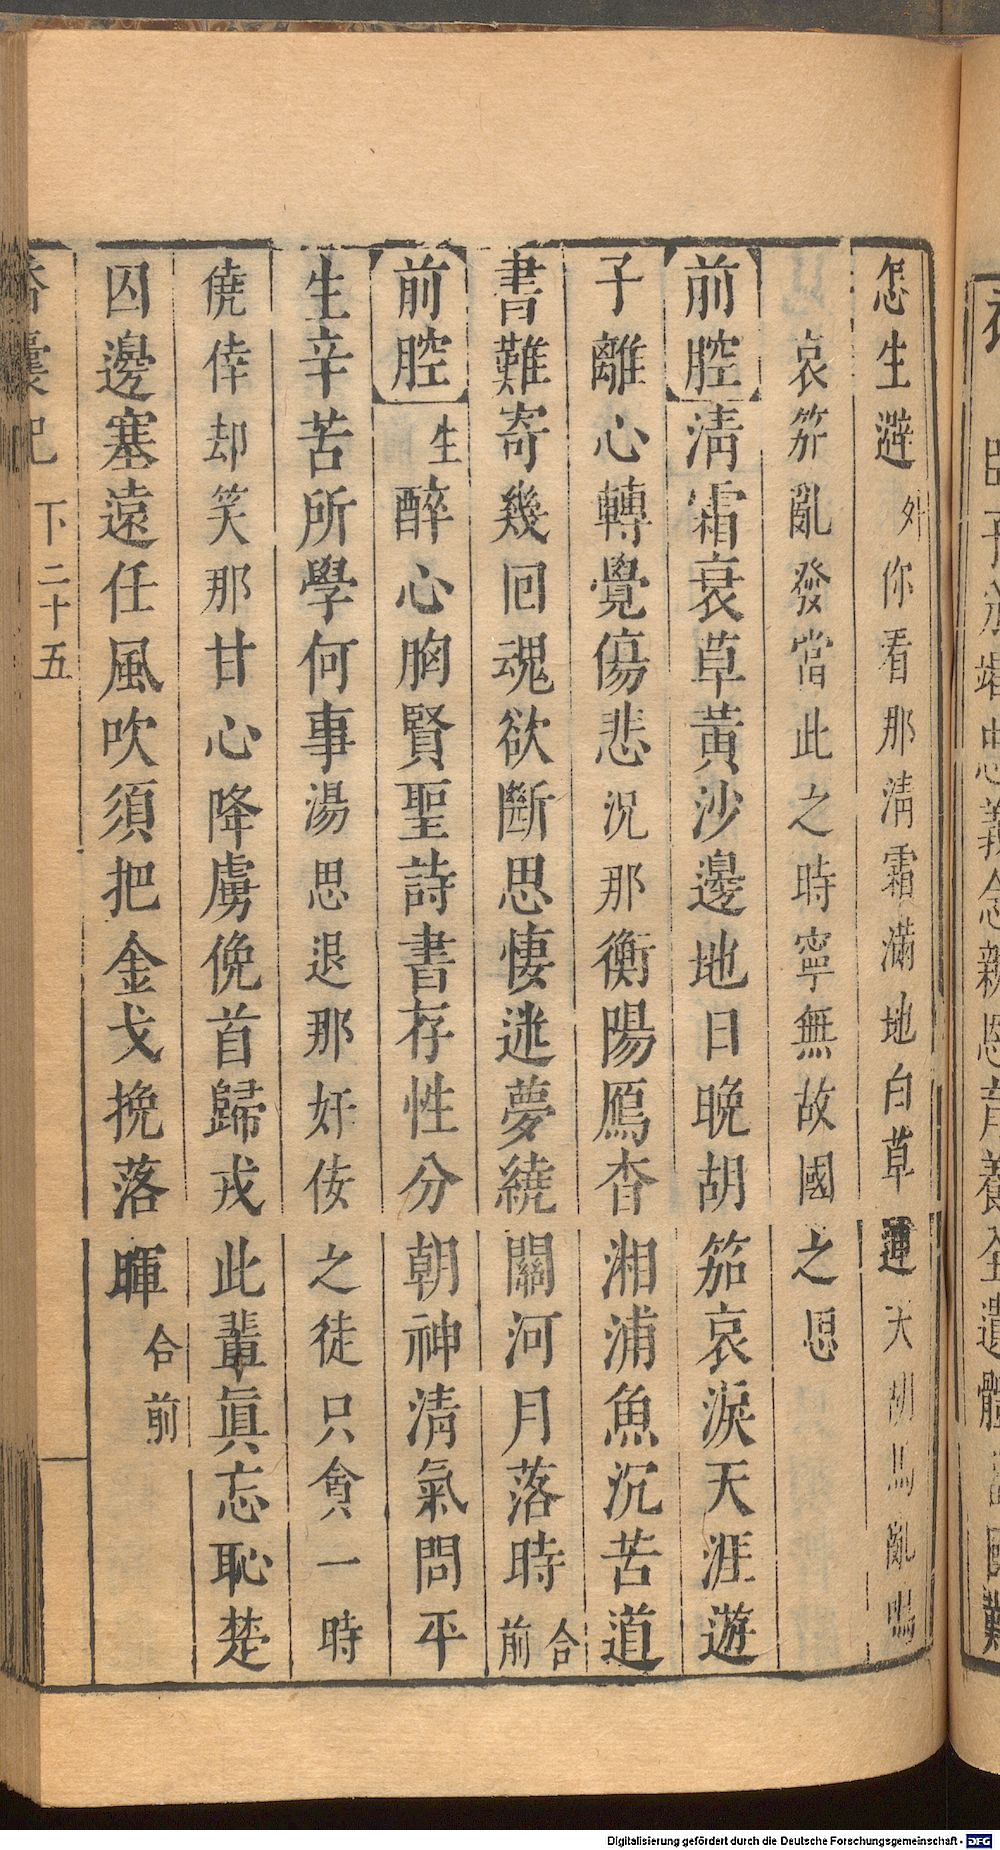 怎生避外你看那淸霜滿地白草連天胡馬亂鳴
哀笳亂發當此之時寧無故國之思
前腔淸霜衰草黃沙邊地日晚胡笳哀淚天涯遊
子離心轉覺傷悲况那衡陽鴈杳湘浦魚沉苦道
書難寄幾回魂欲斷思悽迷夢繞關河月落時合前
前腔生醉心胸賢聖詩書存性分朝神清氣問平
生辛苦所學何事湯思退那奸佞之徒只貪一時
僥倖却笑那甘心降虜俛首歸戎此輩眞忘恥楚
囚邊塞遠任風吹須把金戈挽落暉合前
香囊記 下二十五
Digitalisierung gefördert durch die Deutsche Forschungsgemeinschaft - DFG